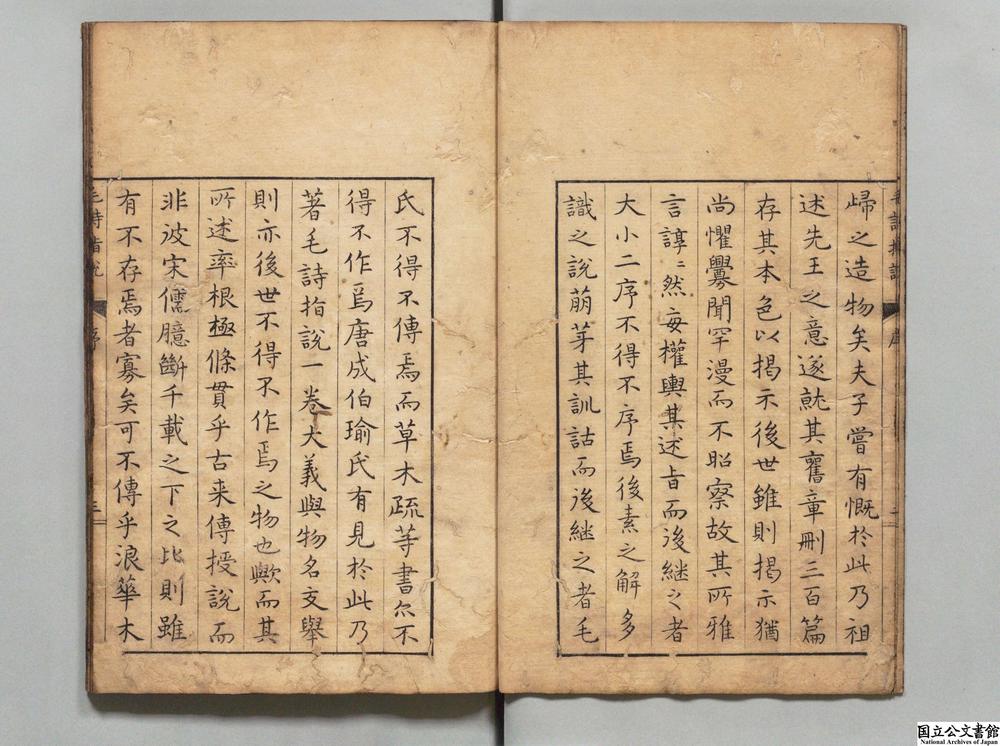 歸之造物矣夫子嘗有慨於此乃祖
述先王之意遂就其舊章刪三百篇
存其本色以揭示後世雖則揭示猶
尚懼爨聞罕漫而不昭察故其所雅
言諄〻然毎權輿其述旨而後継之者
大小二序不得不序焉後素之解多
識之說萠芽其訓詁而後継之者毛
氏不得不傳焉而草木疏等書尓不
得不作焉唐成伯瑜氏有見於此乃
著毛詩指說一卷大義與物名文舉
則亦後世不得不作焉之物也歟而其
所述率根極條貫乎古来傳授說而
非彼宋儒臆斷千載之下之比則雖
有不存焉者寡矣可不傳乎浪華木
毛詩指說
序
三
国立公文書館
National Archives of Japan